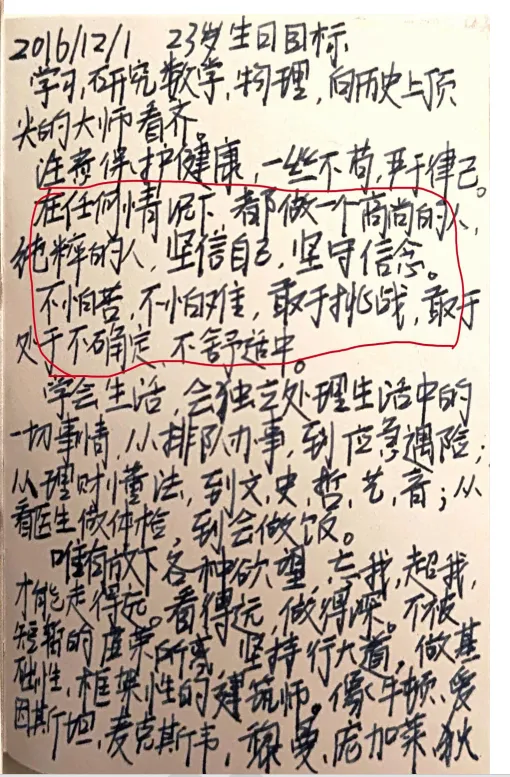 2016/12/1 23岁生日目标
学习,研究数学,物理,向历史上顶
尖的大师看齐。
注意保护健康,一丝不苟,严于律己。
在任何情况下,都做一个高尚的人,
纯粹的人,坚信自己,坚守信念。
不怕苦,不怕难,敢于挑战,敢于
处于不确定,不舒适中。
学会生活,会独立处理生活中的
一切事情,从排队办事,到应急遇险;
从理财懂法,到文,史,哲,艺,音;从
看医生做体检,到会做饭。
唯有放下各种欲望,忘我,超我,
才能走得远。看得远,做得深。不被
短暂的虚荣所惑,坚持行大道,做基
础性,框架性的建筑师。像牛顿、爱
因斯坦,麦克斯韦,黎曼,庞加莱,狄